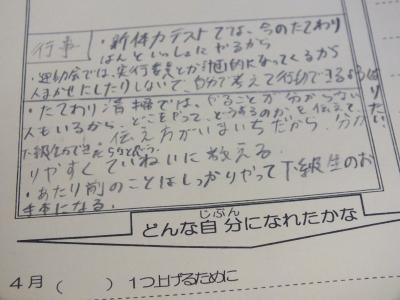 行事
・新体力テストでは、今のたてわり
はんといっしょにやるから
・運動会では、実行委員とか計画的になってくるから
人まかせにしたりしないで、自分で考えて行動できるように
がんばりたい
・たてわり清掃では、やることが分からない
人もいるから、どこをやって、どうするのかを伝えて、
伝え方がいまいちだから、分か
りやすくていねいに教える。
・あたり前のことはしっかりやって下級生のお
手本になる。
どんな自分になれたかな
じぶん
4月( )1つ上げるために